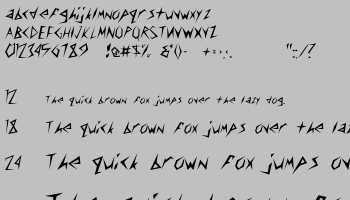 abcdefghijklmnopqrstuvwxyz
ABCDEFGHIJKLMNOPQRSTUVWXYZ
0123456789 !@#$% &*()- +=:;, "':;/?
12 The quick brown fox jumps over the lazy dog.
18 The quick brown fox jumps over the la
24 The quick brown fox jumps ov